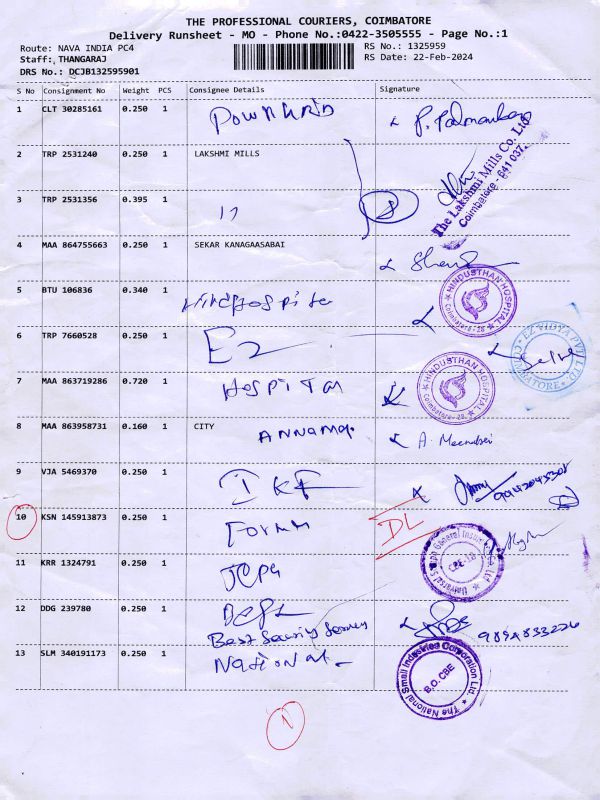 THE PROFESSIONAL COURIERS, COIMBATORE
Delivery Runsheet - MO - Phone No.:0422-3505555 - Page No.:1
Route: NAVA INDIA PC4
RS No.: 1325959
Staff: THANGARAJ
RS Date: 22-Feb-2024
DRS No.: DCJB132595901
S No Consignment No Weight PCS Consignee Details Signature
1 CLT 30285161 0.250 1
2 TRP 2531240 0.250 1 LAKSHMI MILLS
The Lakshmi Mills Co. Ltd
Coimbatore - 641 037.
3 TRP 2531356 0.395 1 11
4 MAA 864755663 0.250 1 SEKAR KANAGAASABAI
5 BTU 106836 0.340 1
HINDUSTHAN HOSPITAL
Coimbatore-28
6 TRP 7660528 0.250 1 EZ
EZ VIDYA PVT LTD
COIMBATORE
7 MAA 863719286 0.720 1 Hospital
HINDUSTHAN HOSPITAL
Coimbatore-28
8 MAA 863958731 0.160 1 CITY
A. Meenatsi
9 VJA 5469370 0.250 1 IKF
10 KSN 145913873 0.250 1 DL
11 KRR 1324791 0.250 1
Universal Sompo General Insurance Co. Ltd
CBE-18
12 DDG 239780 0.250 1
Best Security
13 SLM 340191173 0.250 1 National
The National Small Industries Corporation Ltd.
B.O. CBE
1